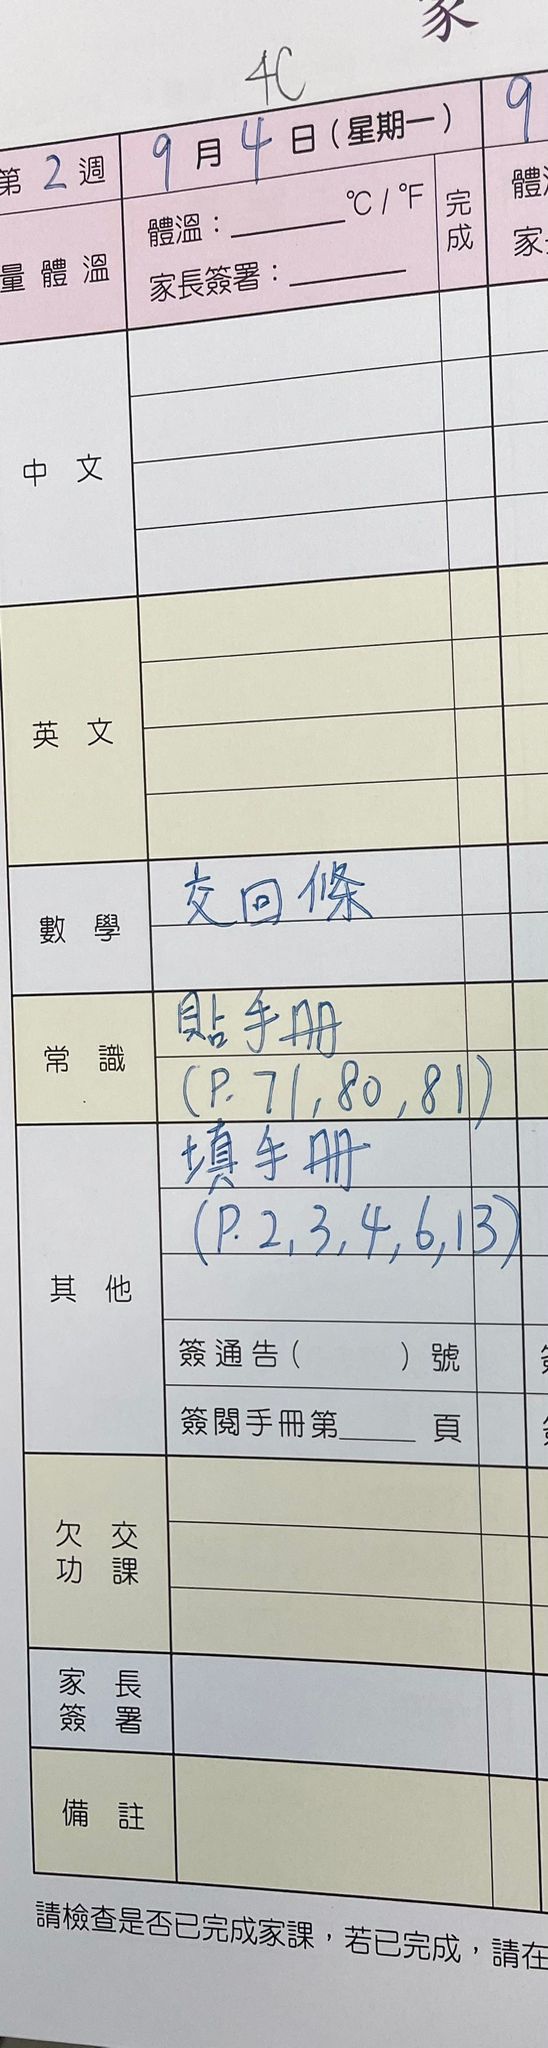 家
4C
第 2 週
9 月 4 日 (星期一)
9
量體溫
體溫：______°C / °F
完成
體
家長簽署：______
家
中 文
英 文
數 學
交回條
常 識
貼手冊
(P. 71, 80, 81)
其 他
填手冊
(P. 2, 3, 4, 6, 13)
簽通告 ( ) 號
簽閱手冊第____ 頁
欠 交
功 課
家 長
簽 署
備 註
請檢查是否已完成家課，若已完成，請在